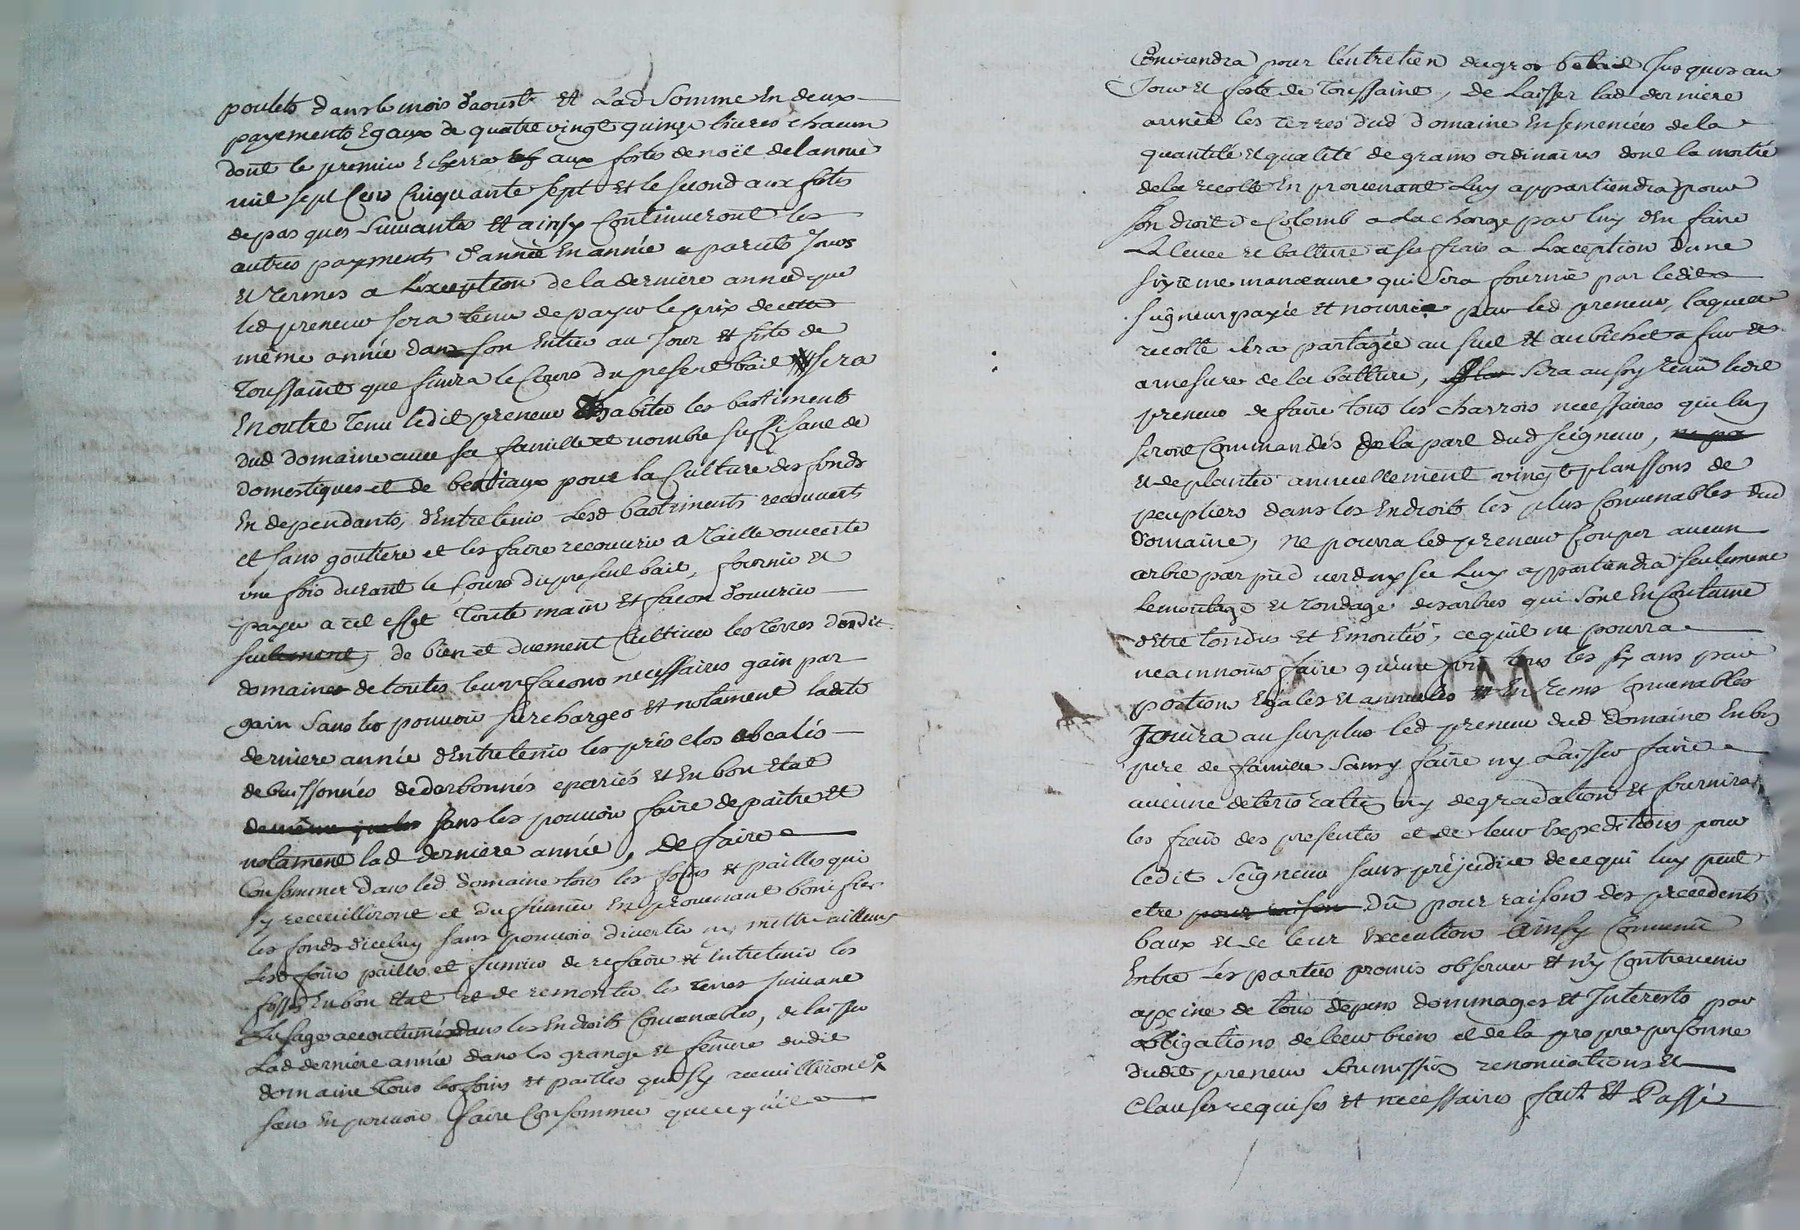 poulets dans le mois daoust et Lad Somme En deux
payements Egaux de quatre vingt quinze livres chacun
dont le premier Echerra aux fetes de noël delannée
mil sept Cens Cinquante sept et le second aux fetes
de pasques Suivantes et ainsy Continueront les
autres payments d'année En année a pareils Jours
et termes a L'exception de la derniere année que
led preneur sera tenu de payer le prix de cette
même année dans son Entier au Jour et fete de
Toussaint que finira le Cours du present bail sera
En outre tenu ledit preneur habiter les bastiments
dud domaine avec sa famille et nombre suffisant de
domestiques et de bestiaux pour la Culture des fonds
En dependants, d'Entretenir Lesd bastiments recouverts
et sans goutiere et les faire recouvrir a taille ouverte
une fois durant le Cours du present bail, fournir et
payer a cet effet toute main et façon d'ouvrier
seulement, de bien et duement Cultiver les terres dudit
domaine de toutes leurs façons necessaires gain par
gain Sans les pouvoir surcharger et notament ladite
derniere année d'Entretenir les prés clos
debuissonnés dedarbonnés epariés et En bon Etat
de même que les sans les pouvoir faire depaitre et
notament lad derniere année, De faire
Consommer dans led domaine tous les foins et pailles qui
sy receuilliront et du fumier En provenant bonifier
les fonds d'iceluy sans pouvoir divertir ny mettre ailleurs
Lesd foins pailles et fumier de refaire et Entretenir les
fossés En bon Etat et de remonter les terres suivant
L'usage accoutumé dans les Endroits Convenables, de laisser
Lad derniere année dans les grange et feniere dudit
domaine tous les foins et pailles qui sy receuilliront
sans En pouvoir faire Consommer que ce qu'il
Conviendra pour l'entretien du gros betail Jusques au
Jour et fete de Toussaint, de Laisser lad derniere
année les terres dud domaine Ensemencées de la
quantité et qualité de grains ordinaires dont la moitié
de la recolte En provenant Luy appartiendra pour
son droit de Colomb a La charge par luy d'En faire
La levée et batture a ses frais a L'exception d'une
sixieme manoeuvre qui sera fournie par ledit
seigneur payée et nourrie par led preneur, laquelle
recolte sera partagée au suel et au bichet a fur et
a mesure de la batture, sera aussy tenu ledit
preneur de faire tous les charrois necessaires qui luy
seront Commandés de la part dud seigneur,
et de planter annuellement vingt planssons de
peupliers dans les Endroits les plus Convenables dud
domaine, ne pourra led preneur Couper aucun
arbre par pied verd ny sec Luy appartiendra seulement
Lemontage et tondage des arbres qui sont En Coutume
d'Etre tondus et Emontés, ce quil ne pourra
neammoins faire quune fois tous les six ans par
portion Egales et annuelles et En tems Convenables
Jouira au surplus led preneur dud domaine En bon
pere de famille Sans y faire ny Laisser faire
aucune deterioration ny degradation et fournira
les frais des presentes et de leur Expeditions pour
ledit Seigneur sans préjudice de ce qui luy peut
etre pour raison Dû pour raison des precedents
baux et de leur Execution Ainsy Convenû
Entre les parties promis observer et n'y Contrevenir
a peine de tous depens dommages et Interests par
obligations de leur biens et de la propre personne
dudit preneur Soumission renonciations et
Clauses requises et necessaires fait et Passé